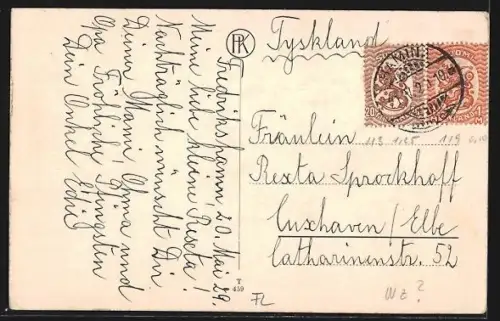 Fredrikshamn, 20. Mai 29.
Meine liebe kleine Rexta!
Nachträglich wünscht Dir
Deiner Mami, Oma und
Opa Fröhliche Pfingsten
Dein Onkel Edu
PK
Tyskland
20
Fräulein
113 1125 119
Rexta Sprockhoff
Cuxhaven/Elbe
Catharinenstr. 52
T
459
FL
WZ?